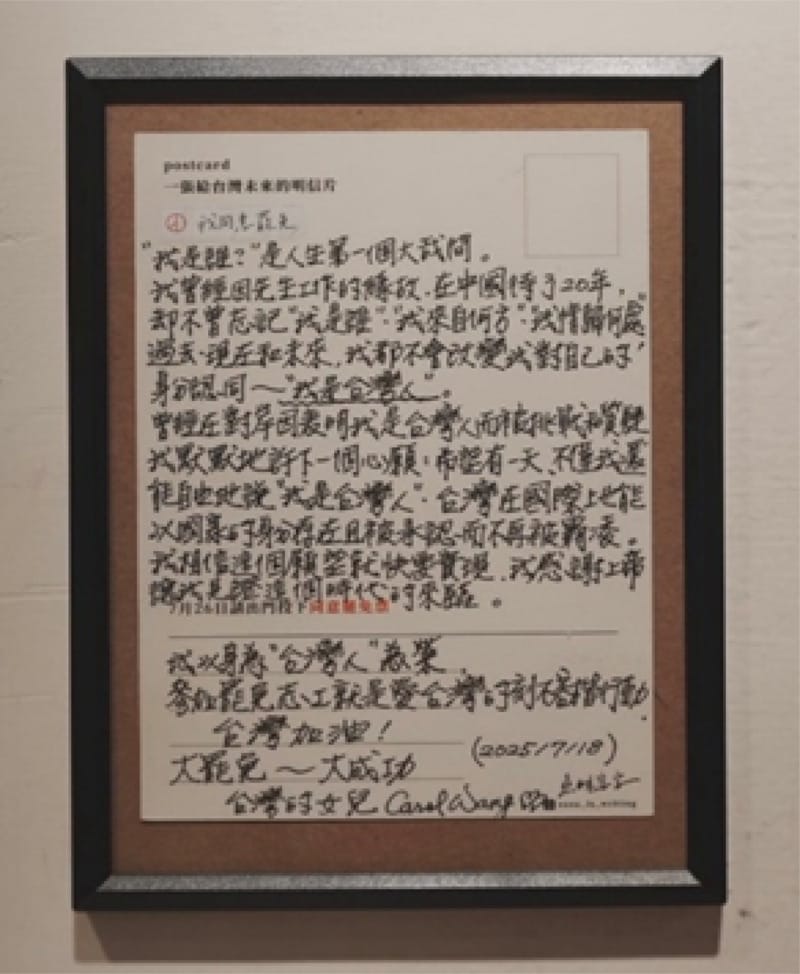 postcard
一張給台灣未來的明信片
我同意罷免
"我是誰？"是人生第一個大哉問。
我曾經因先生工作的緣故，在中國待了20年，
卻不曾忘記"我是誰"."我來自何方"."我情歸何處"
過去、現在和未來，我都不會改變我對自己的
身分認同～"我是台灣人"。
曾經在對岸因表明我是台灣人而被挑戰和質疑
我默默地許下一個心願：希望有一天，不僅我還
能自由地說"我是台灣人"，台灣在國際上也能
以國家的身分存在且被承認而不再被霸凌。
我相信這個願望就快要實現，我感謝上帝
讓我見證這個時代的來臨。
7月26日請出門投下同意罷免票
我以身為"台灣人"為榮
參加罷免志工就是愛台灣的刻不容緩行動，
台灣加油！
(2025/7/18)
大罷免～大成功
台灣的女兒 Carol Wang